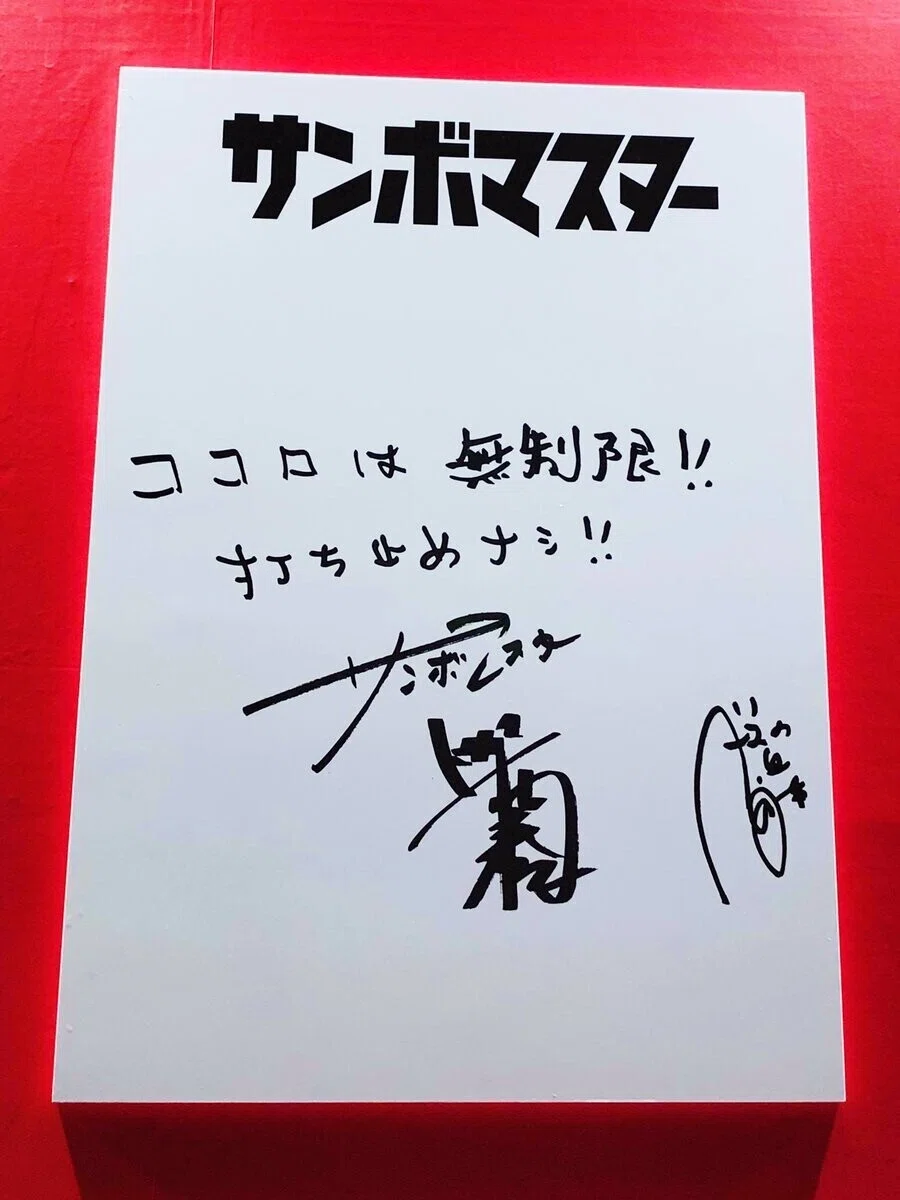 サンボマスター
ココロは 無制限!!
打ち止めナシ!!
サンボマスター